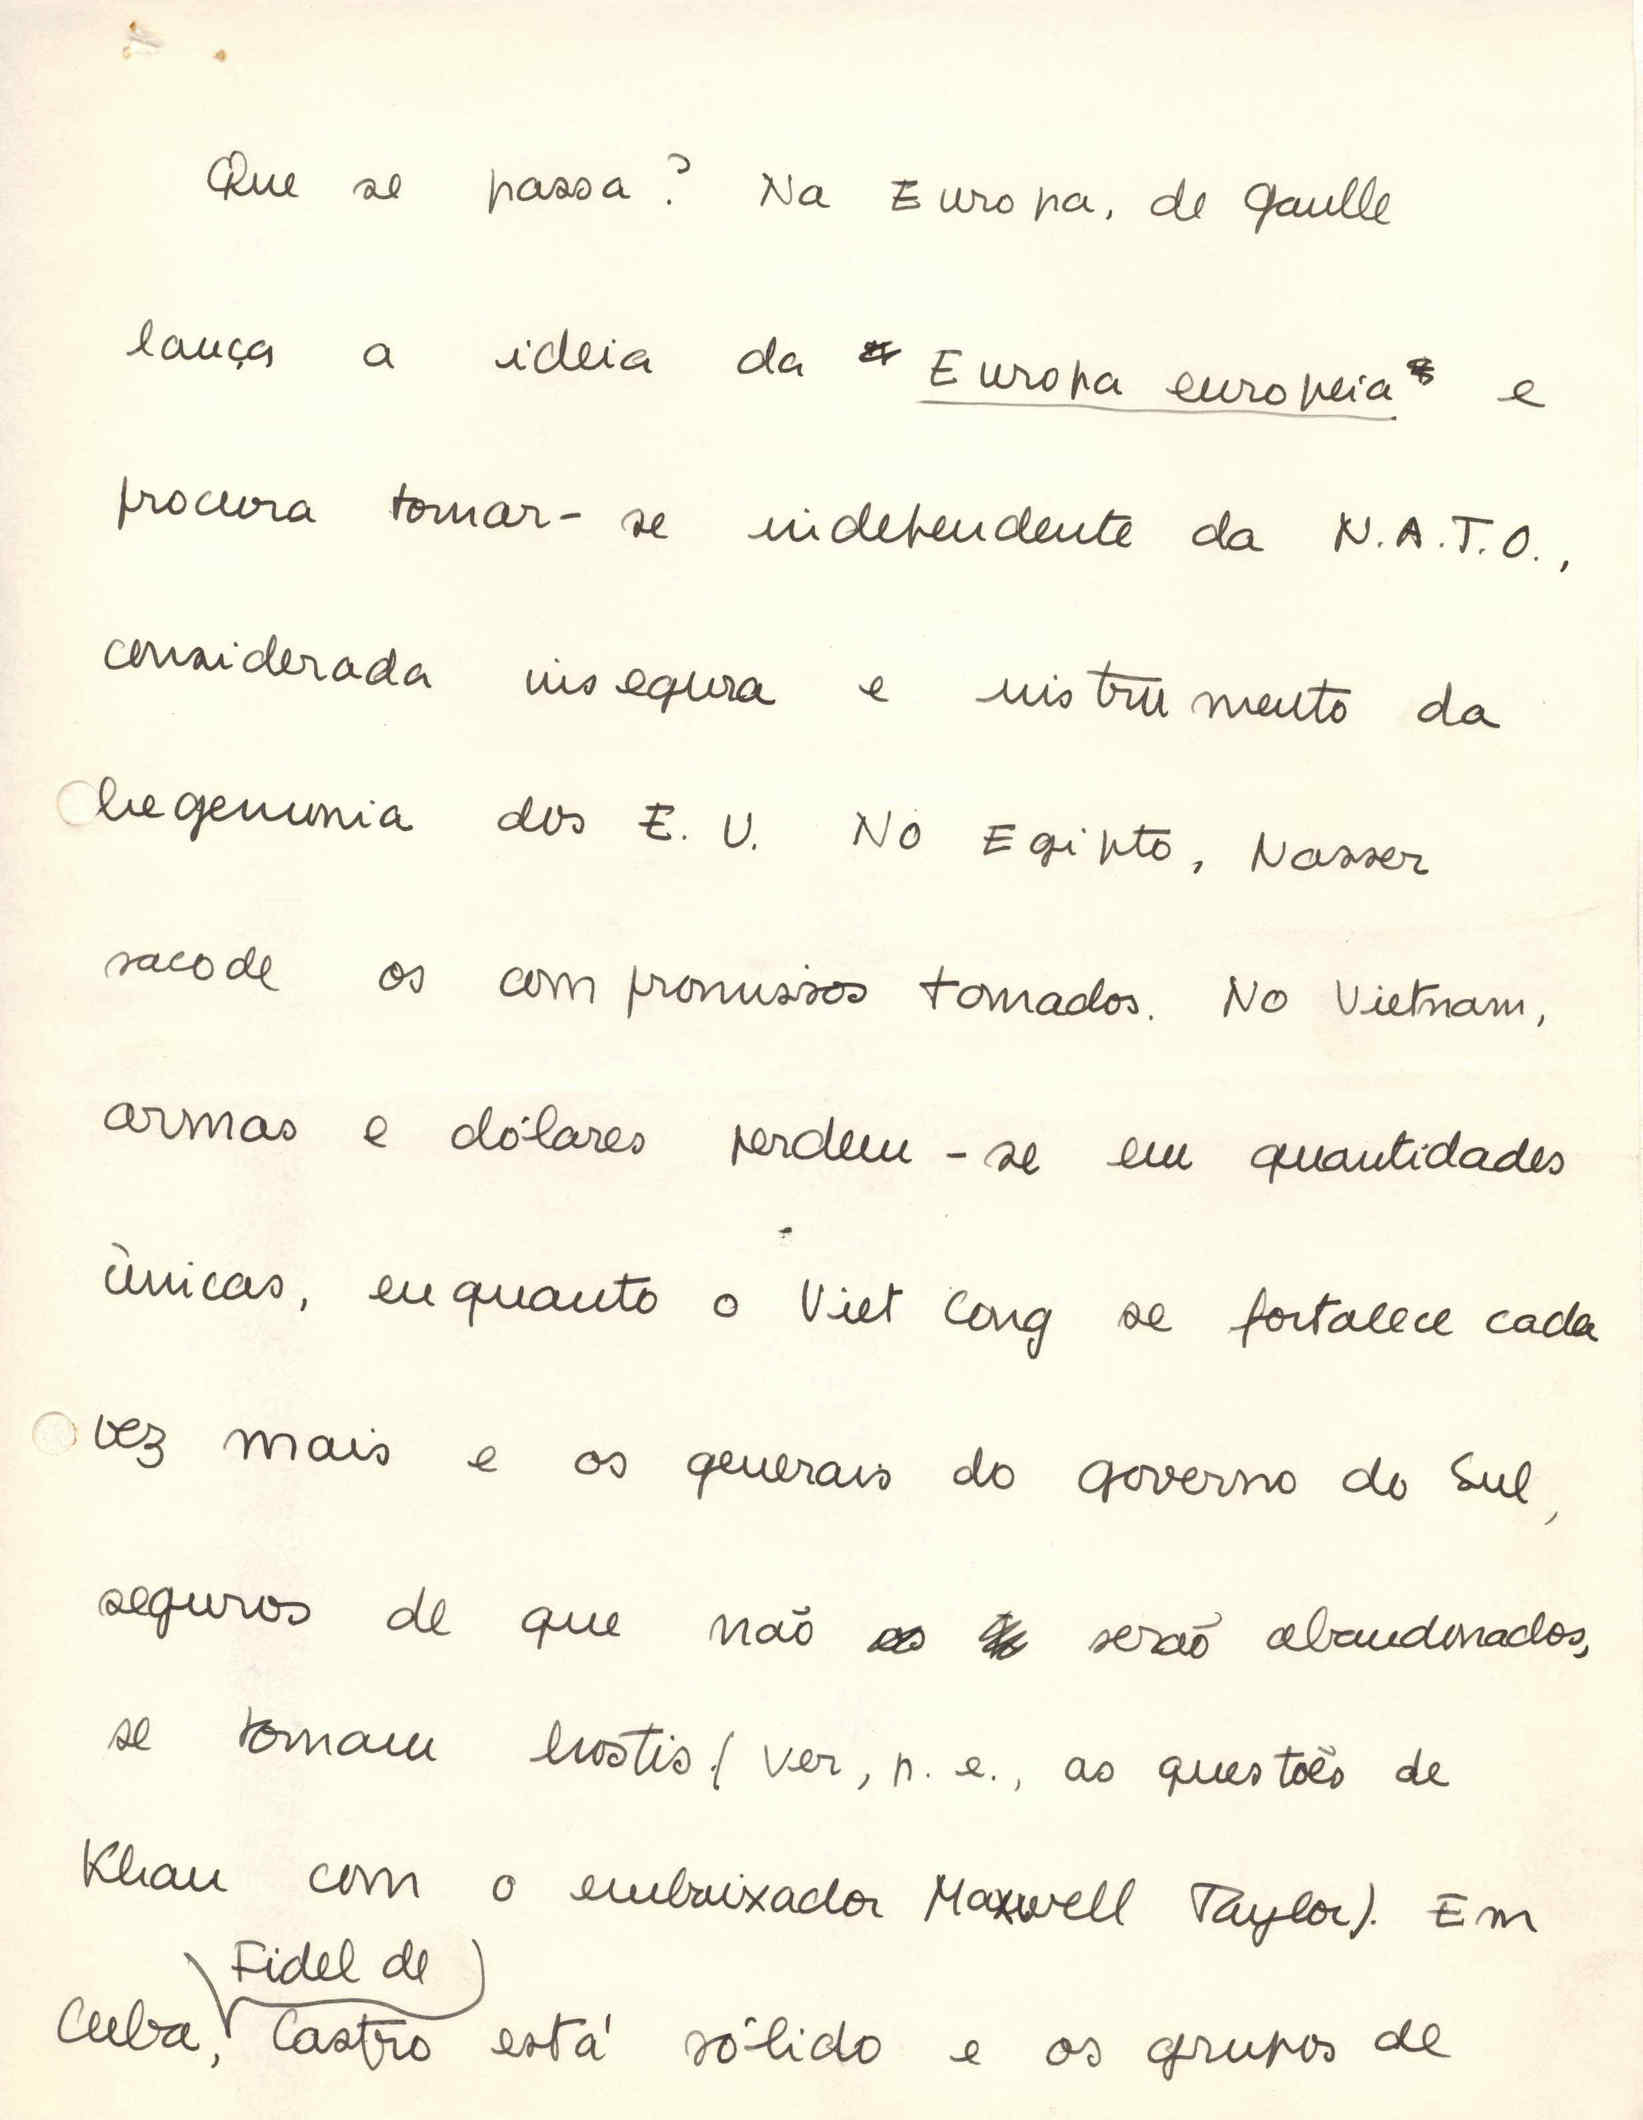 Que se passa? Na Europa, de Gaulle
lança a ideia da Europa europeia e
procura tornar-se independente da N.A.T.O.,
considerada insegura e instrumento da
hegemonia dos E. U. No Egipto, Nasser
sacode os compromissos tomados. No Vietnam,
armas e dólares perdem-se em quantidades
únicas, enquanto o Viet Cong se fortalece cada
vez mais e os generais do governo do Sul,
seguros de que não serão abandonados,
se tornam hostis (ver, p. e., as questões de
Khan com o embaixador Maxwell Taylor). Em
Fidel de
Cuba, Castro está sólido e os grupos de